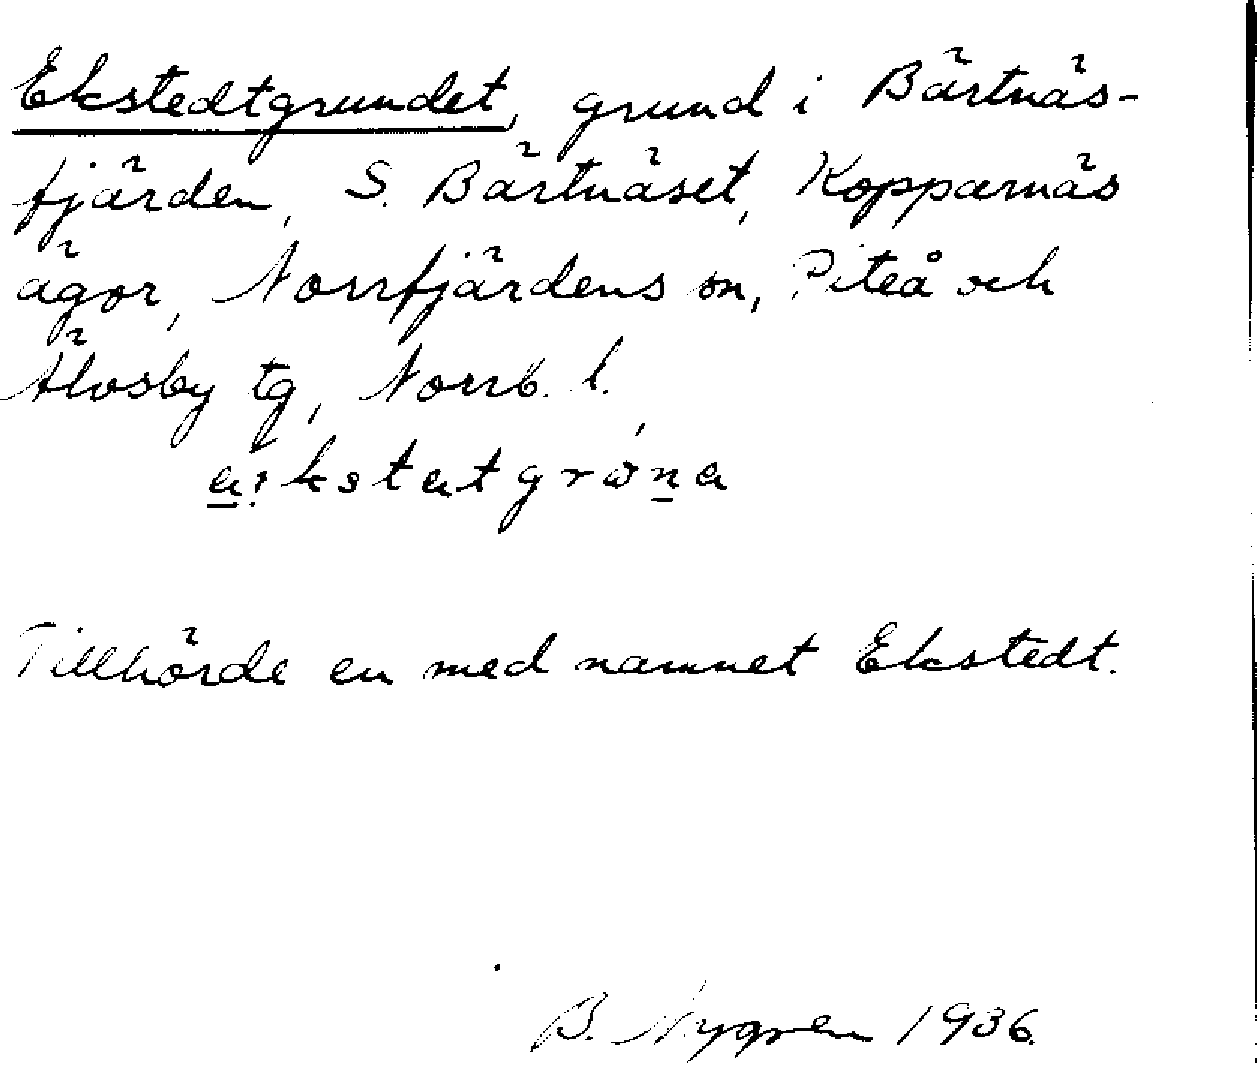 Ekstedtgrundet, grund i Bärtnäs-
fjärden, S. Bärtnäset, Kopparnäs
ägor, Norrfjärdens sn, Piteå och
Älvsby tg, Norrb. l.
Tillhörde en med namnet Ekstedt.
B. Nygren 1936.